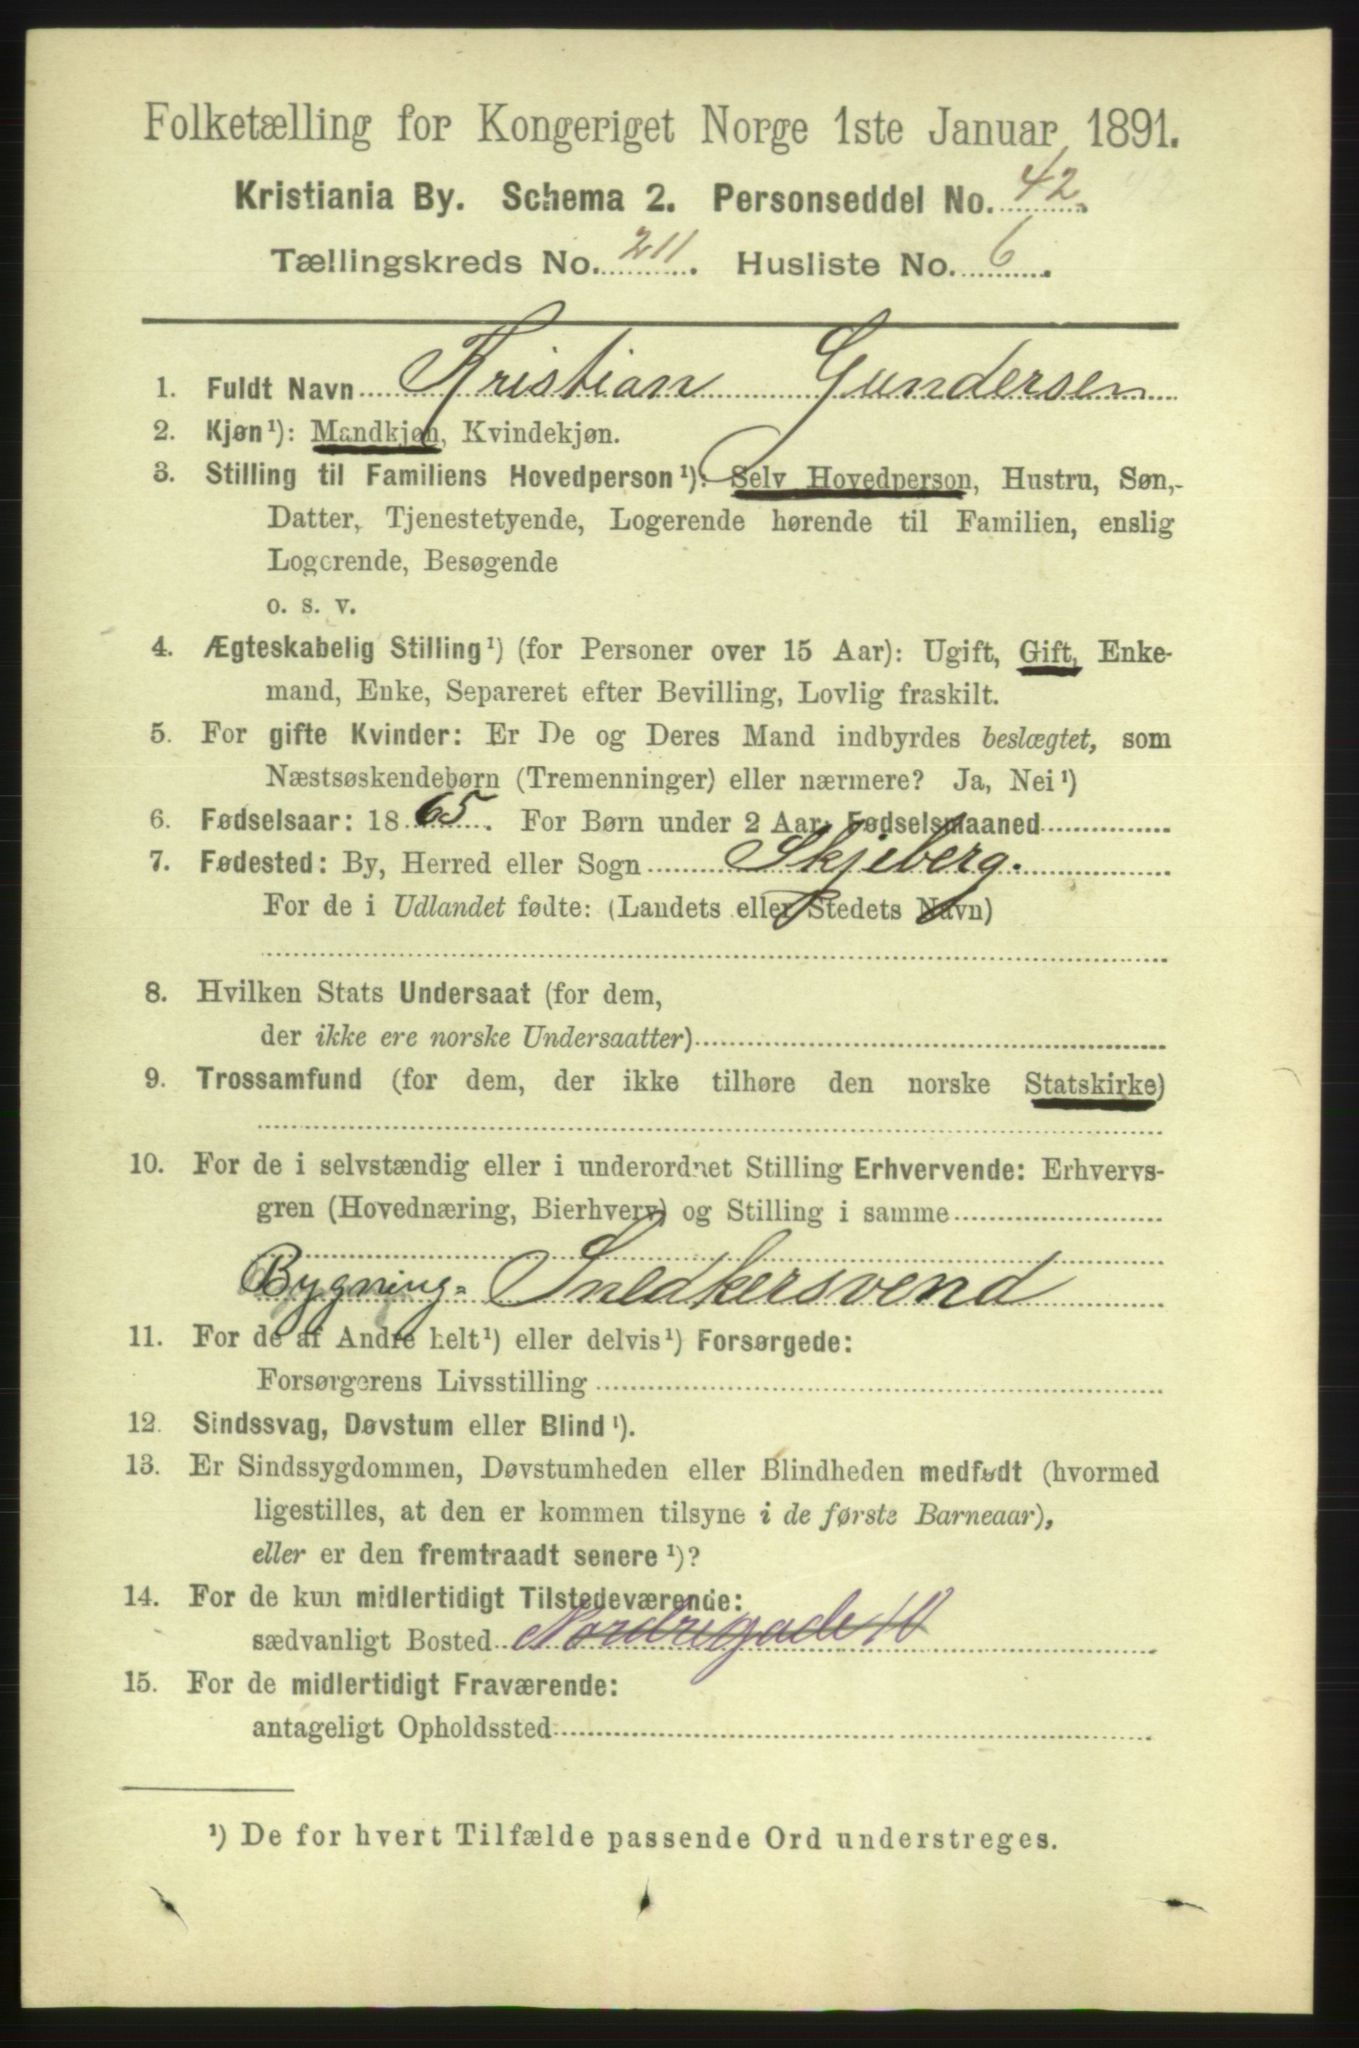 Folketælling for Kongeriget Norge 1ste Januar 1891.
Kristiania By. Schema 2. Personseddel No. 42.
Tællingskreds No. 211. Husliste No. 6.
1. Fuldt Navn Kristian Gundersen
2. Kjøn¹): Mandkjøn, Kvindekjøn.
3. Stilling til Familiens Hovedperson¹): Selv Hovedperson, Hustru, Søn,
Datter, Tjenestetyende, Logerende hørende til Familien, enslig
Logerende, Besøgende
o. s. v.
4. Ægteskabelig Stilling¹) (for Personer over 15 Aar): Ugift, Gift, Enke-
mand, Enke, Separeret efter Bevilling, Lovlig fraskilt.
5. For gifte Kvinder: Er De og Deres Mand indbyrdes beslægtet, som
Næstsøskendebørn (Tremenninger) eller nærmere? Ja, Nei¹)
6. Fødselsaar: 1865. For Børn under 2 Aar: Fødselsmaaned
7. Fødested: By, Herred eller Sogn Skjeberg.
For de i Udlandet fødte: (Landets eller Stedets Navn)
8. Hvilken Stats Undersaat (for dem,
der ikke ere norske Undersaatter)
9. Trossamfund (for dem, der ikke tilhøre den norske Statskirke)
10. For de i selvstændig eller i underordnet Stilling Erhvervende: Erhvervs-
gren (Hovednæring, Bierhverv) og Stilling i samme
Bygning- Snedkersvend
11. For de af Andre helt¹) eller delvis¹) Forsørgede:
Forsørgerens Livsstilling
12. Sindssvag, Døvstum eller Blind¹).
13. Er Sindssygdommen, Døvstumheden eller Blindheden medfødt (hvormed
ligestilles, at den er kommen tilsyne i de første Barneaar),
eller er den fremtraadt senere¹)?
14. For de kun midlertidigt Tilstedeværende:
sædvanligt Bosted Nordregade 10
15. For de midlertidigt Fraværende:
antageligt Opholdssted
¹) De for hvert Tilfælde passende Ord understreges.